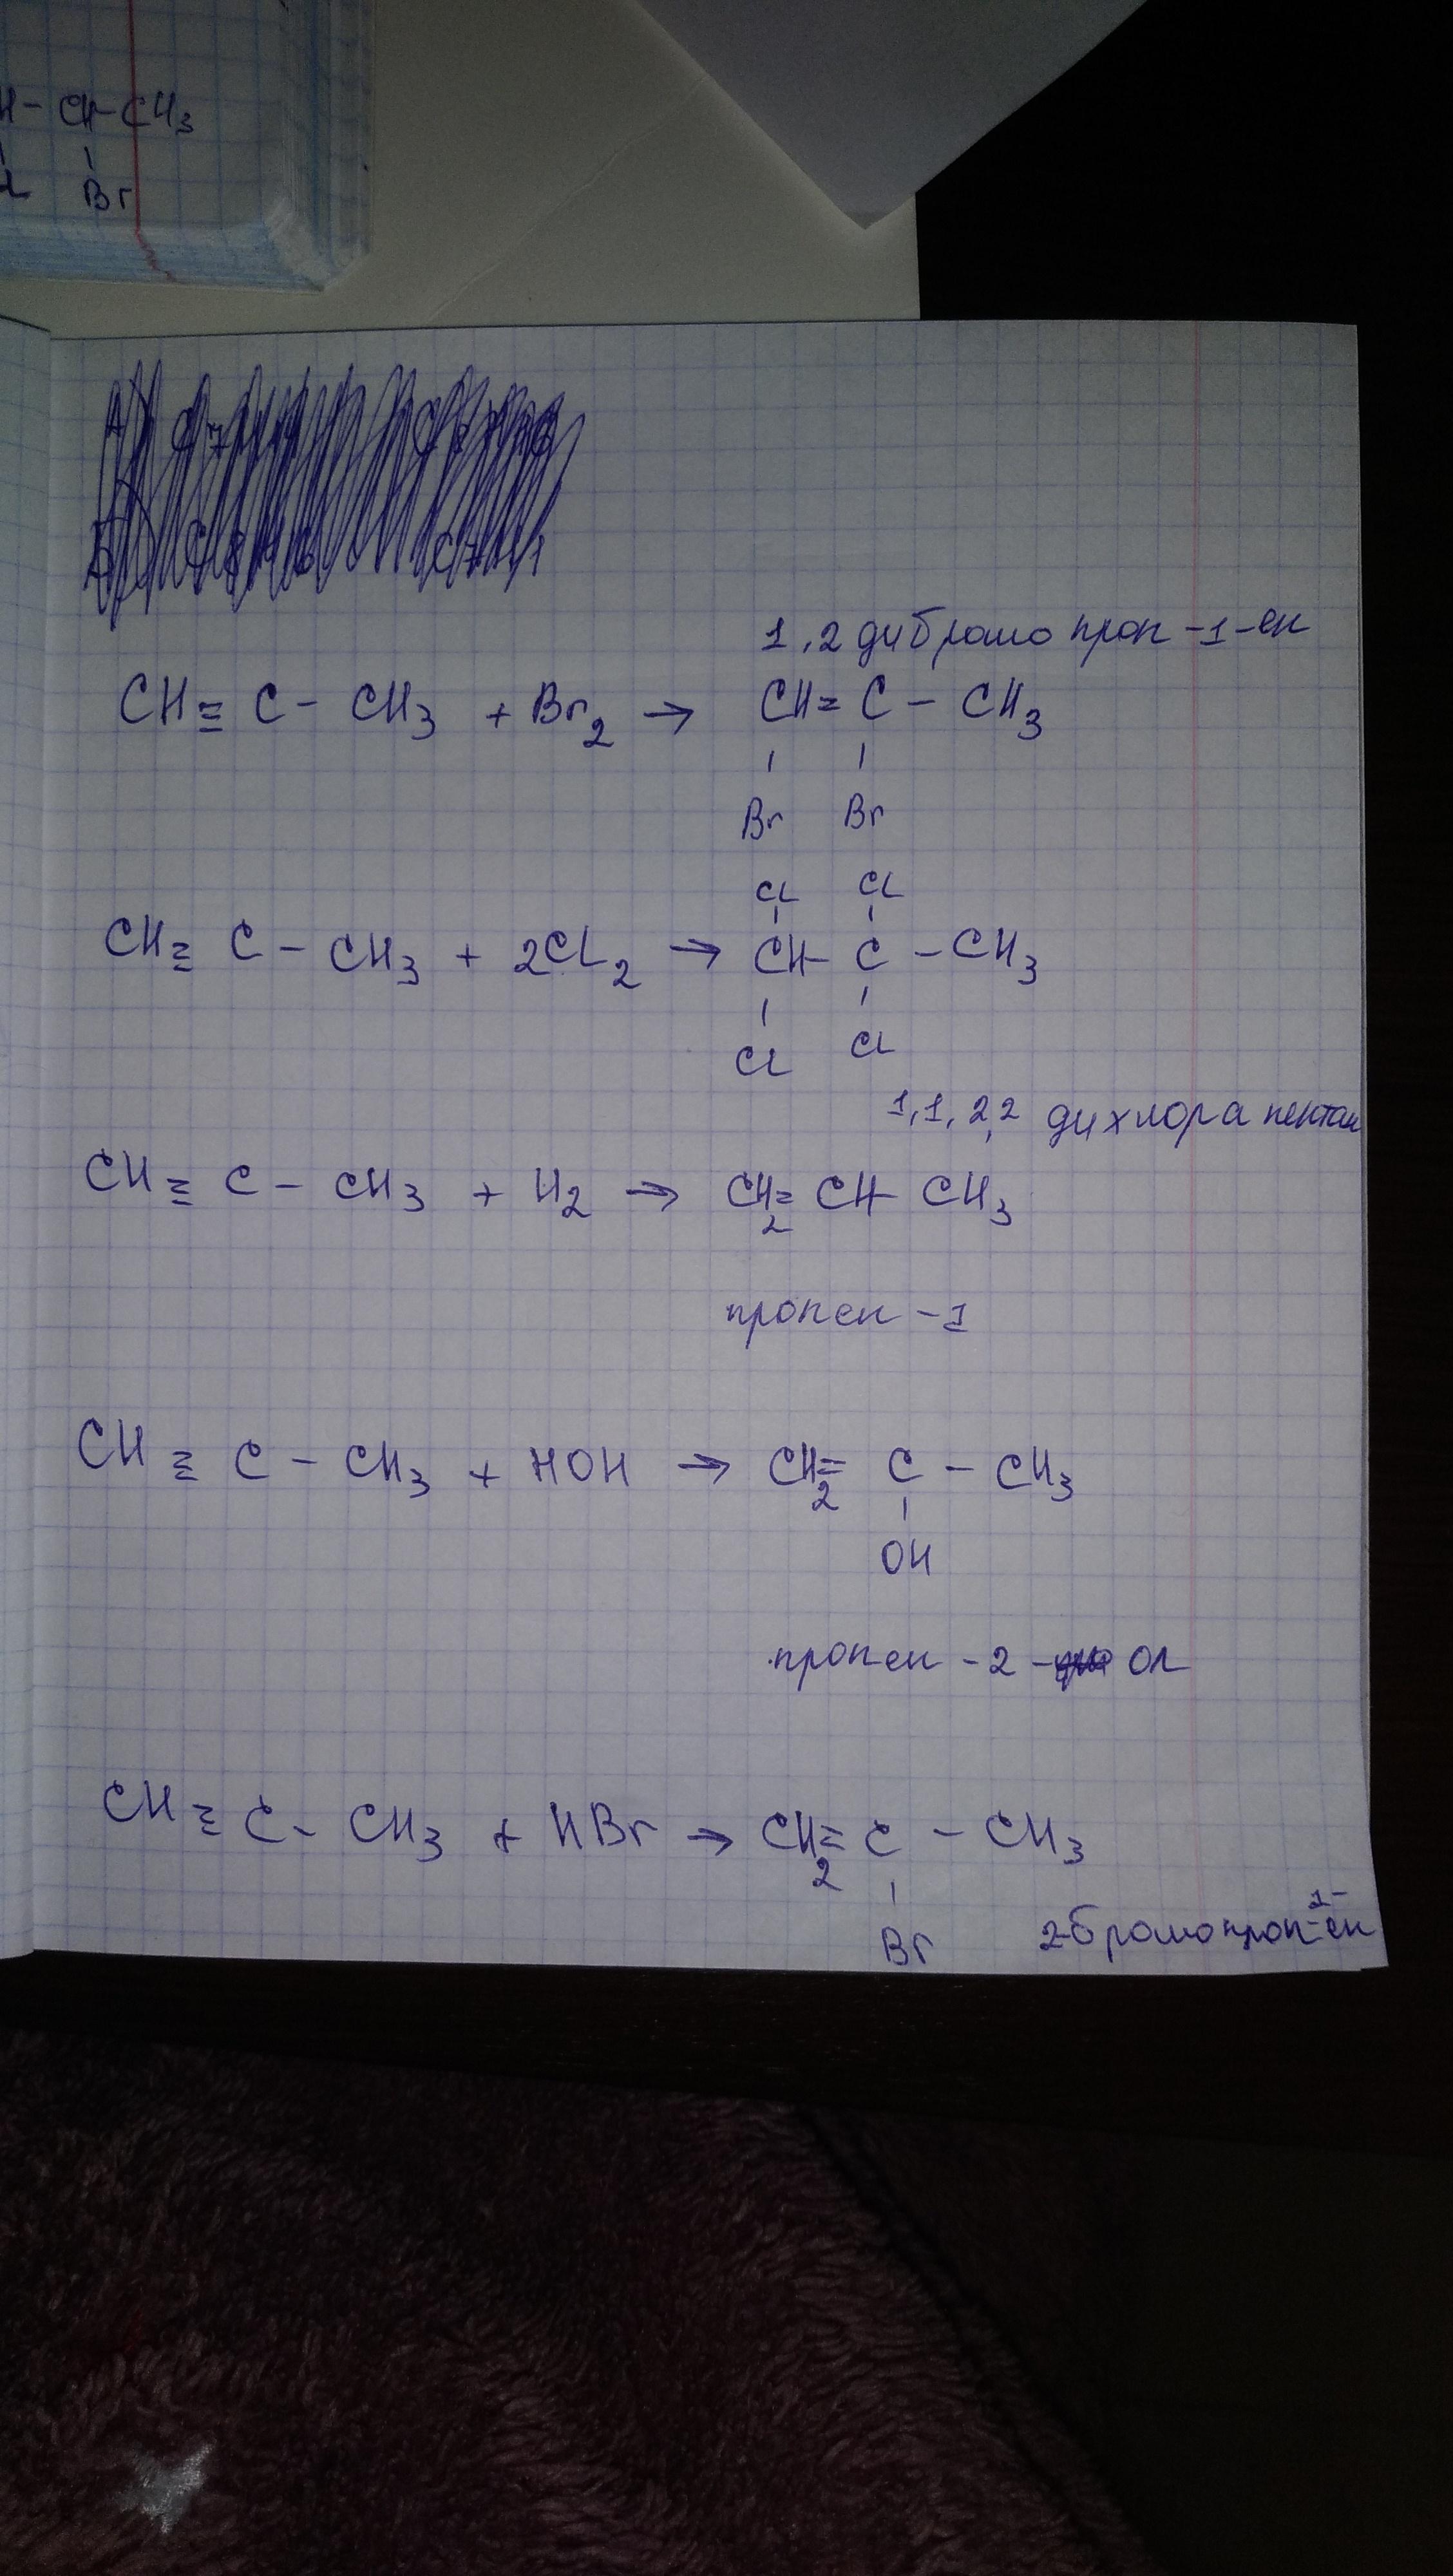 H - CH - CH3
Br
1,2 дибромо проп -1-ен
CH ≡ C - CH3 + Br2 → CH = C - CH3
Br Br
Cl Cl
CH ≡ C - CH3 + 2Cl2 → CH - C - CH3
Cl Cl
1,1,2,2 дихлора пентан
CH ≡ C - CH3 + H2 → CH2 = CH - CH3
пропен -1
CH ≡ C - CH3 + HOH → CH2 = C - CH3
OH
пропен -2 - ол
CH ≡ C - CH3 + HBr → CH2 = C - CH3
Br 2-бромопроп-1-ен